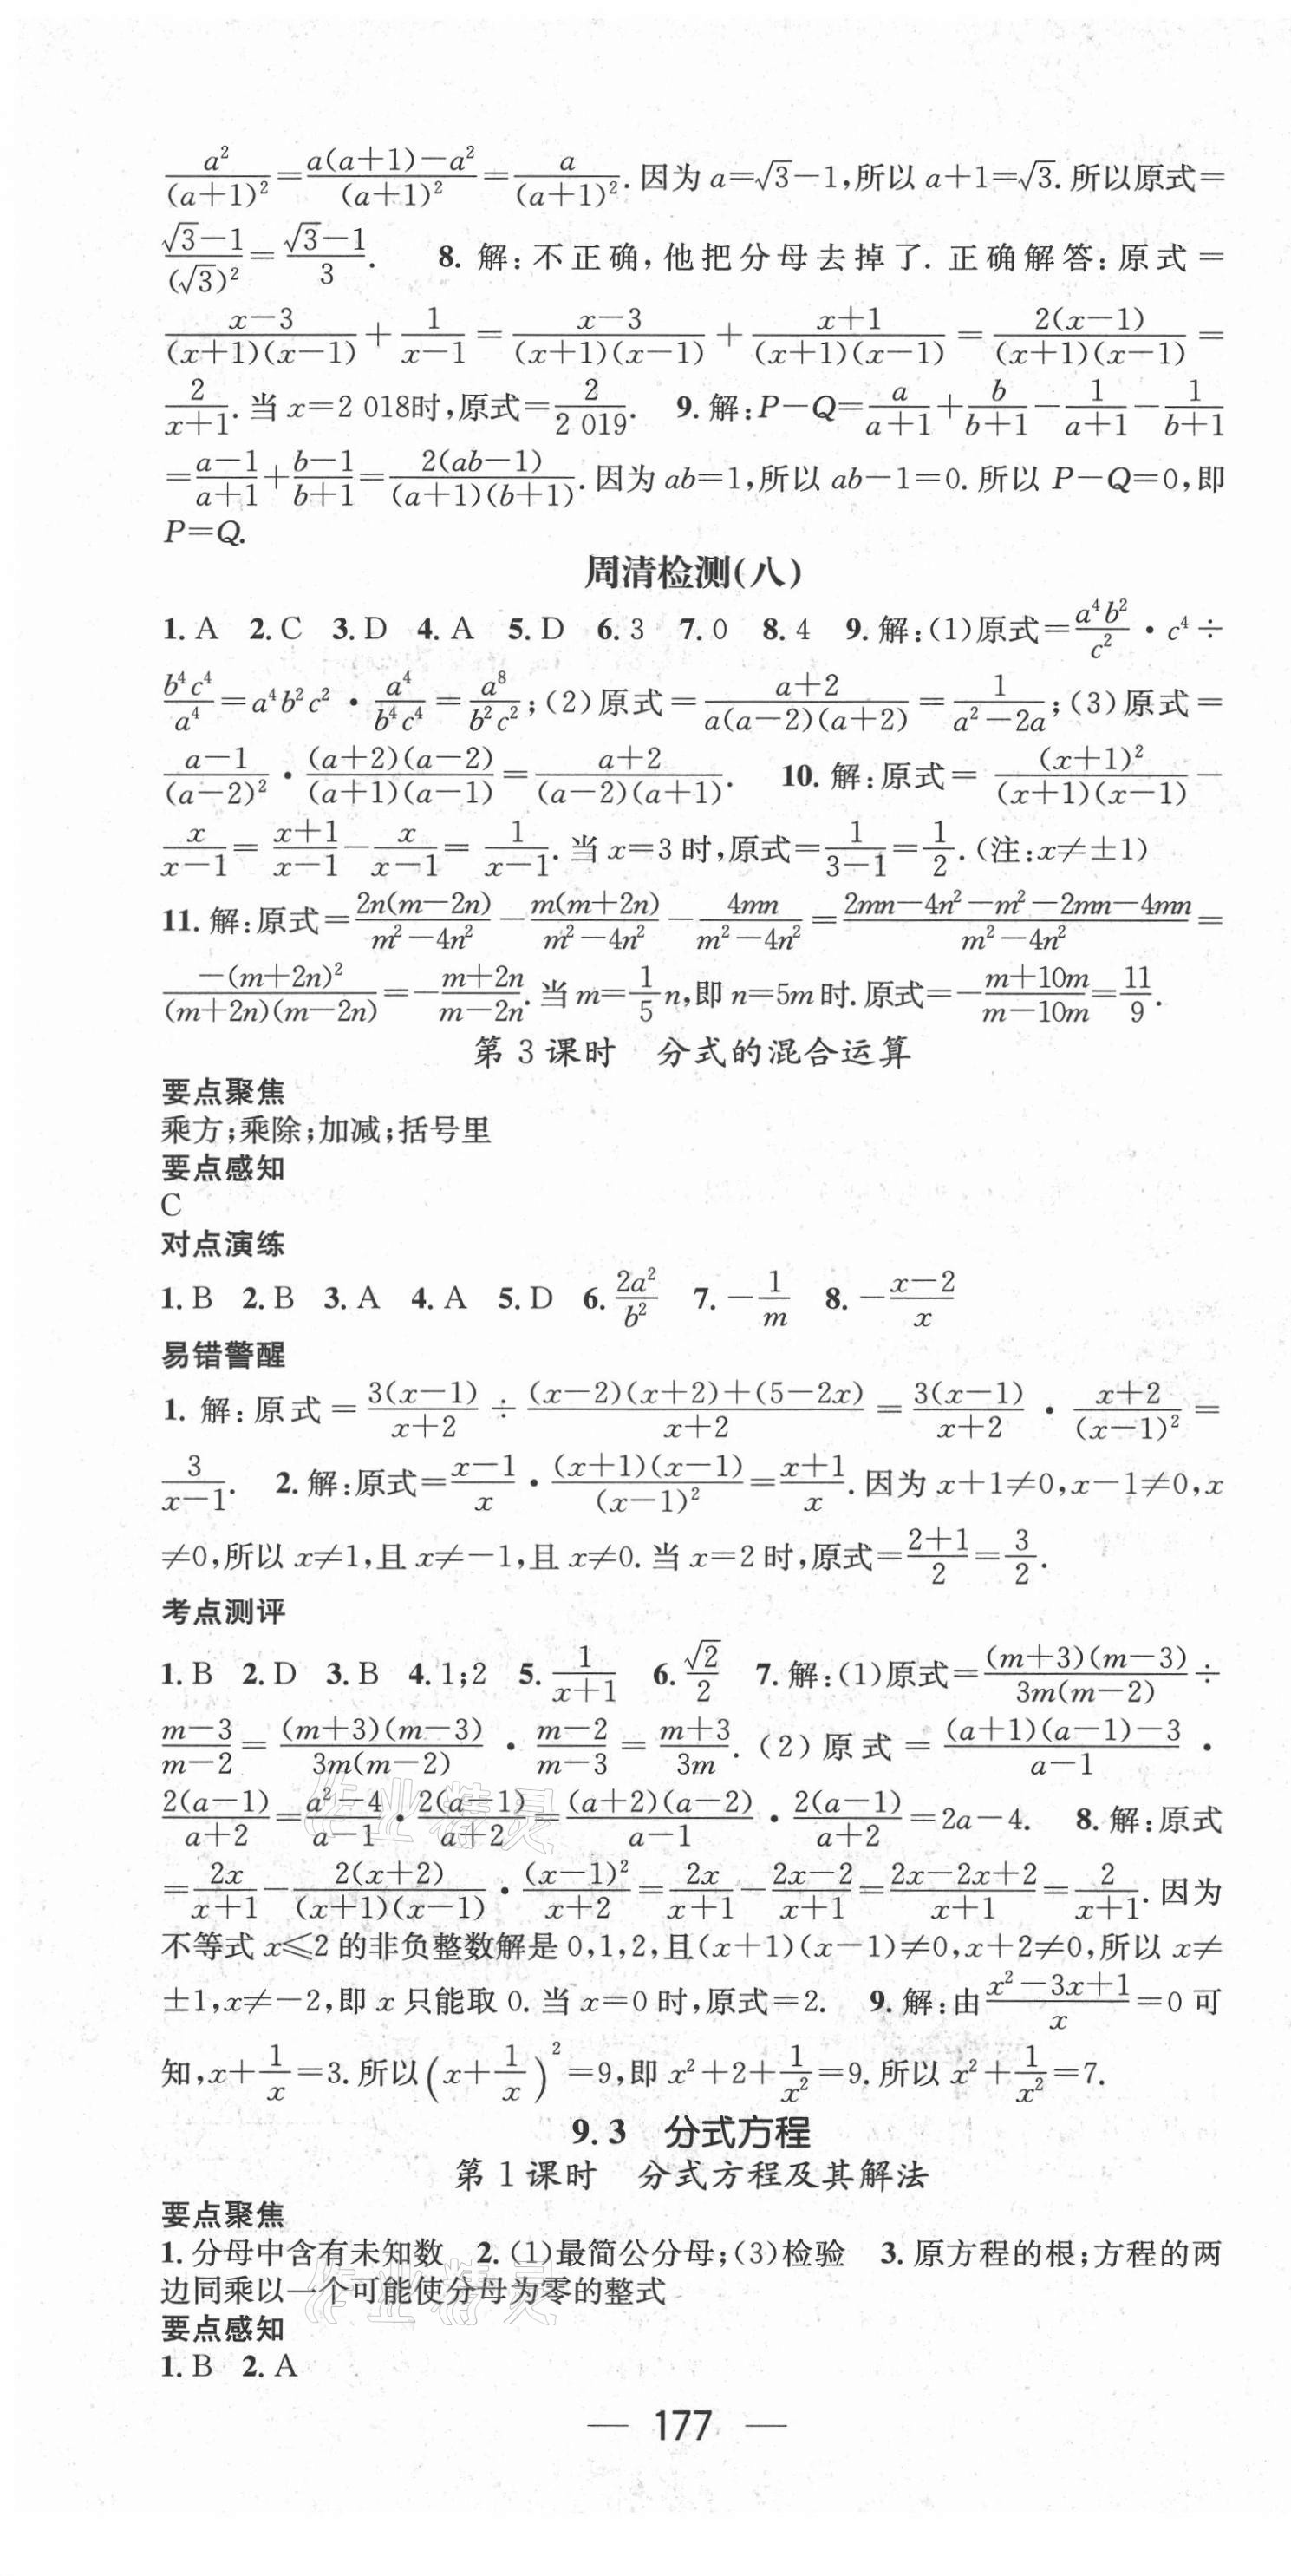 a²/(a+1)²=(a(a+1)-a²)/(a+1)²=a/(a+1)².因为a=√3-1,所以a+1=√3.所以原式=
(√3-1)/(√3)²=(√3-1)/3. 8. 解:不正确,他把分母去掉了. 正确解答:原式=
(x-3)/((x+1)(x-1))+1/(x-1)=(x-3)/((x+1)(x-1))+(x+1)/((x+1)(x-1))=2(x-1)/((x+1)(x-1))=
2/(x+1).当x=2 018时,原式=2/2 019. 9.解:P-Q=a/(a+1)+b/(b+1)-1/(a+1)-1/(b+1)
=(a-1)/(a+1)+(b-1)/(b+1)=2(ab-1)/((a+1)(b+1)).因为ab=1,所以ab-1=0.所以P-Q=0,即
P=Q.
周清检测(八)
1.A 2.C 3.D 4.A 5.D 6.3 7.0 8.4 9.解:(1)原式=a⁴b²/c²·c⁴÷
b⁴c⁴/a⁴=a⁴b²c²·a⁴/(b⁴c⁴)=a⁸/(b²c²);(2)原式=(a+2)/(a(a-2)(a+2))=1/(a²-2a);(3)原式=
(a-1)/(a-2)²·((a+2)(a-2))/((a+1)(a-1))=(a+2)/((a-2)(a+1)). 10.解:原式=(x+1)²/((x+1)(x-1))-
x/(x-1)=(x+1)/(x-1)-x/(x-1)=1/(x-1).当x=3时,原式=1/(3-1)=1/2.(注:x≠±1)
11.解:原式=2n(m-2n)/(m²-4n²)-m(m+2n)/(m²-4n²)-4mn/(m²-4n²)=(2mn-4n²-m²-2mn-4mn)/(m²-4n²)=
-(m+2n)²/((m+2n)(m-2n))=-(m+2n)/(m-2n).当m=1/5n,即n=5m时.原式=-(m+10m)/(m-10m)=11/9.
第3课时 分式的混合运算
要点聚焦
乘方;乘除;加减;括号里
要点感知
C
对点演练
1.B 2.B 3.A 4.A 5.D 6.2a²/b² 7.-1/m 8.-(x-2)/x
易错警醒
1. 解:原式=3(x-1)/(x+2)÷((x-2)(x+2)+(5-2x))/(x+2)=3(x-1)/(x+2)·(x+2)/(x-1)²=
3/(x-1). 2.解:原式=(x-1)/x·((x+1)(x-1))/(x-1)²=(x+1)/x.因为x+1≠0,x-1≠0,x
≠0,所以x≠1,且x≠-1,且x≠0.当x=2时,原式=(2+1)/2=3/2.
考点测评
1.B 2.D 3.B 4.1;2 5.1/(x+1) 6.√2/2 7.解:(1)原式=((m+3)(m-3))/(3m(m-2))÷
(m-3)/(m-2)=((m+3)(m-3))/(3m(m-2))·(m-2)/(m-3)=(m+3)/3m.(2)原式=((a+1)(a-1)-3)/(a-1)·
2(a-1)/(a+2)=(a²-4)/(a-1)·2(a-1)/(a+2)=((a+2)(a-2))/(a-1)·2(a-1)/(a+2)=2a-4. 8.解:原式
=2x/(x+1)-2(x+2)/((x+1)(x-1))·(x-1)²/(x+2)=2x/(x+1)-(2x-2)/(x+1)=(2x-2x+2)/(x+1)=2/(x+1).因为
不等式x≤2的非负整数解是0,1,2,且(x+1)(x-1)≠0,x+2≠0,所以x≠
±1,x≠-2,即x只能取0.当x=0时,原式=2. 9.解:由(x²-3x+1)/x=0可
知,x+1/x=3.所以(x+1/x)²=9,即x²+2+1/x²=9.所以x²+1/x²=7.
9.3 分式方程
第1课时 分式方程及其解法
要点聚焦
1.分母中含有未知数 2.(1)最简公分母;(3)检验 3.原方程的根;方程的两
边同乘以一个可能使分母为零的整式
要点感知
1.B 2.A
— 177 —
作业精灵
作业精灵